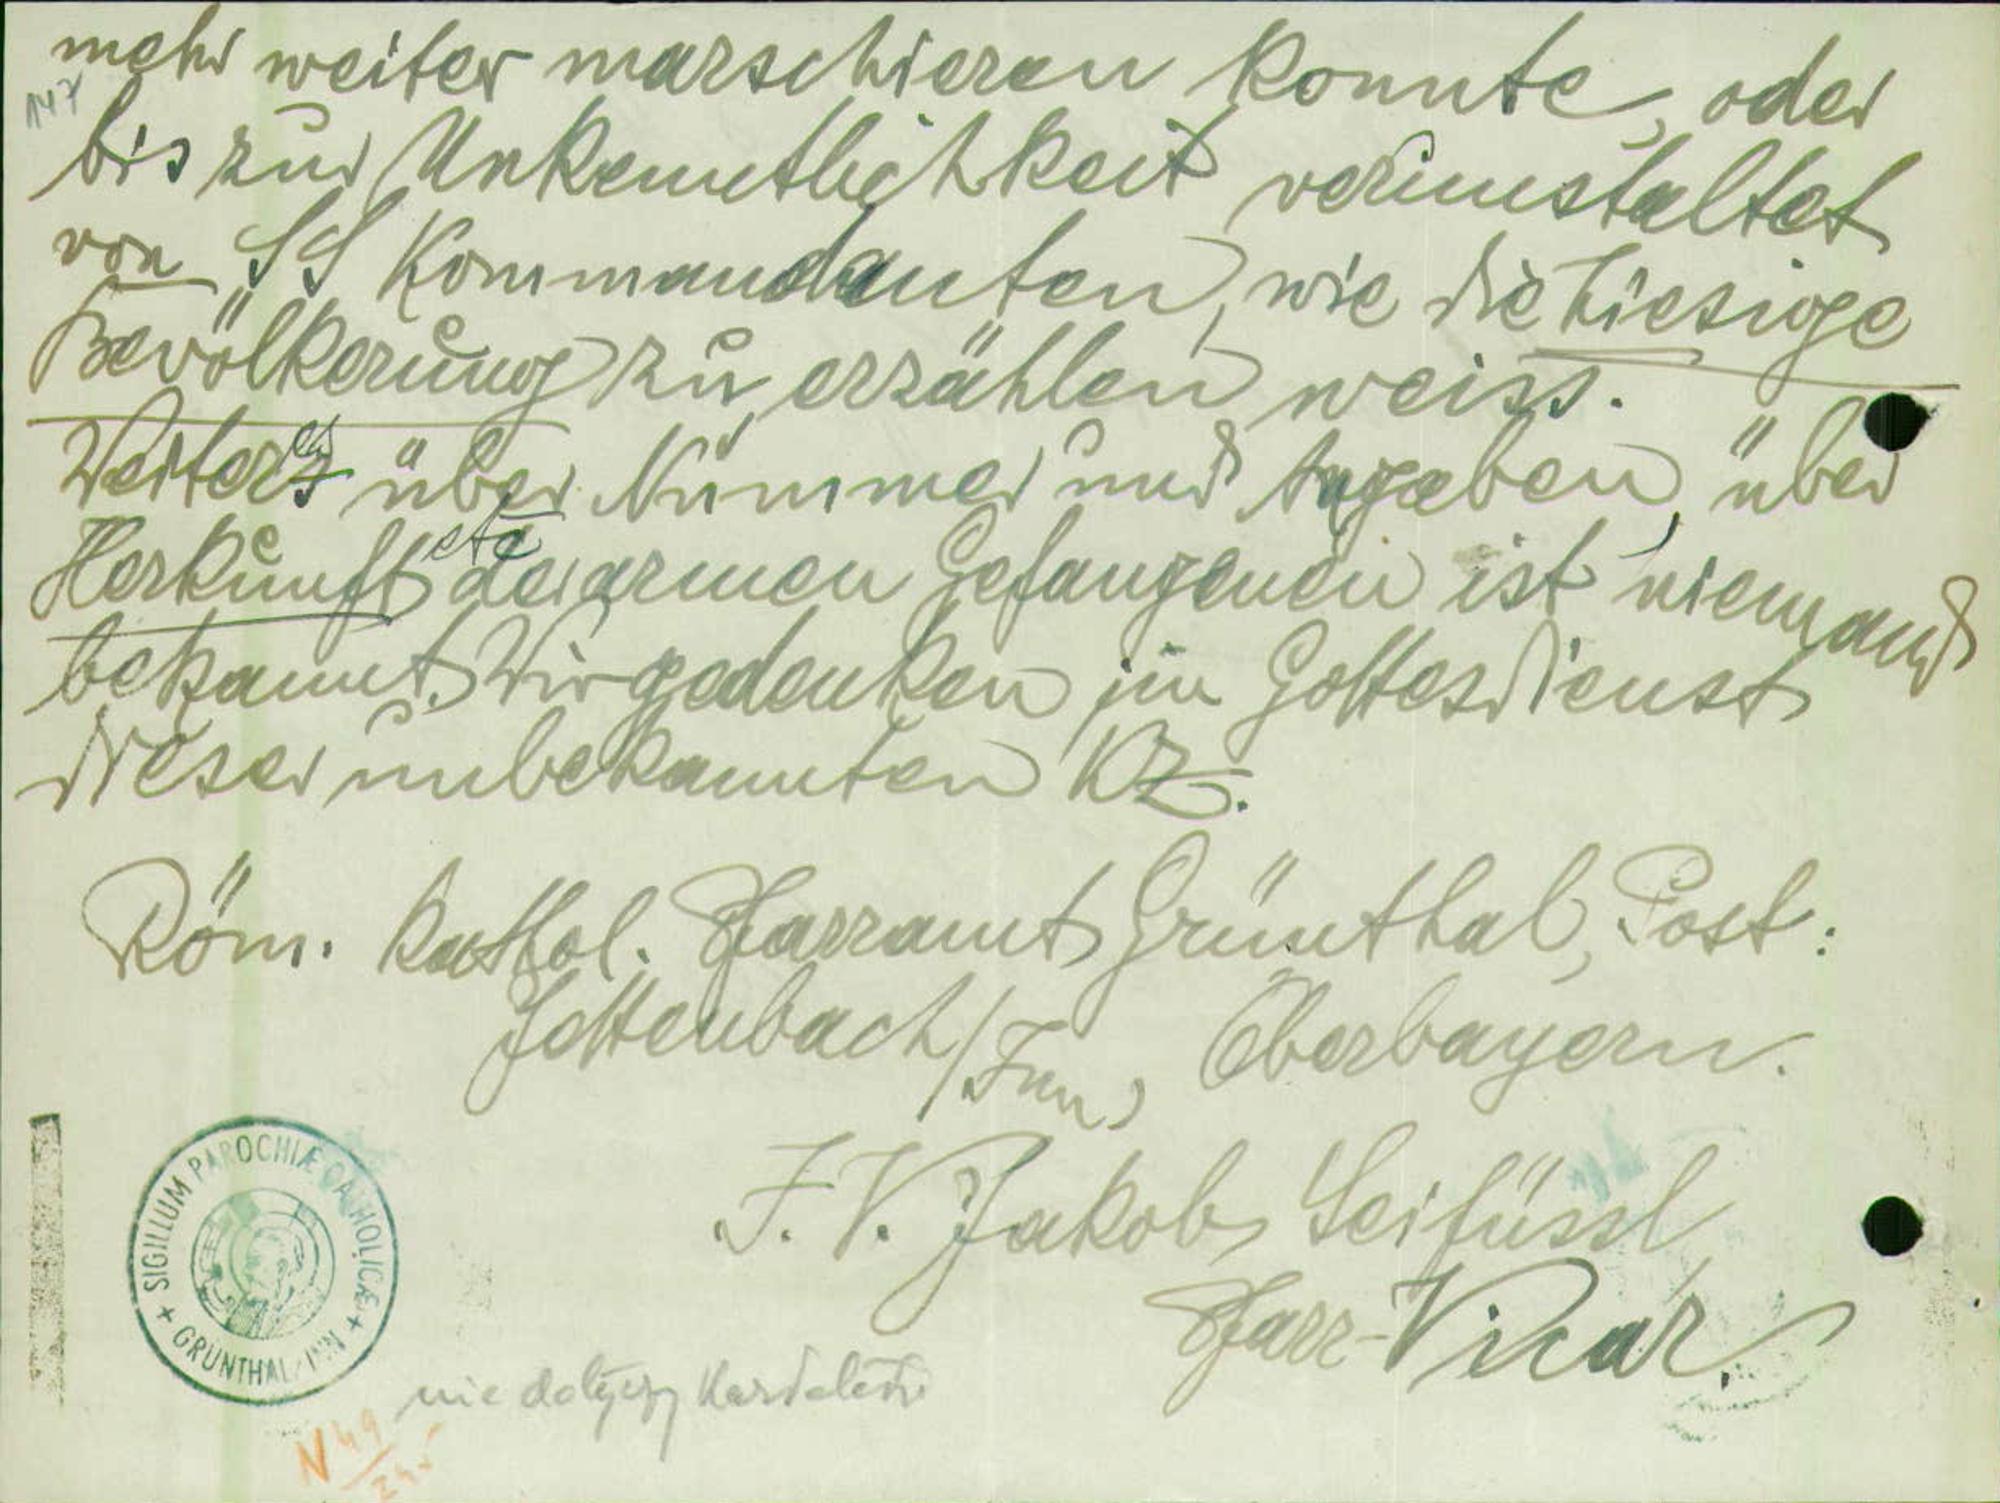 mehr weiter marschieren konnte, oder
147
bis zur Unkenntlichkeit verunstaltet
von SS Kommandanten, wie die hiesige
Bevölkerung zu erzählen weiss.
Weiters über Nummer und Angaben, über
Herkunft etc der armen Gefangenen ist niemand
bekannt. Wir gedenken im Gottesdienst
dieser unbekannten KZ.
Röm. kathol. Pfarramt Grünthal, Post:
Jettenbach/Inn, Oberbayern.
J. V. Jakob Seifüssl
Pfarr-Vicar.
SIGILLUM PAROCHIÆ CATHOLICÆ
+ GRÜNTHAL/INN +
nie dotyczy
N 49